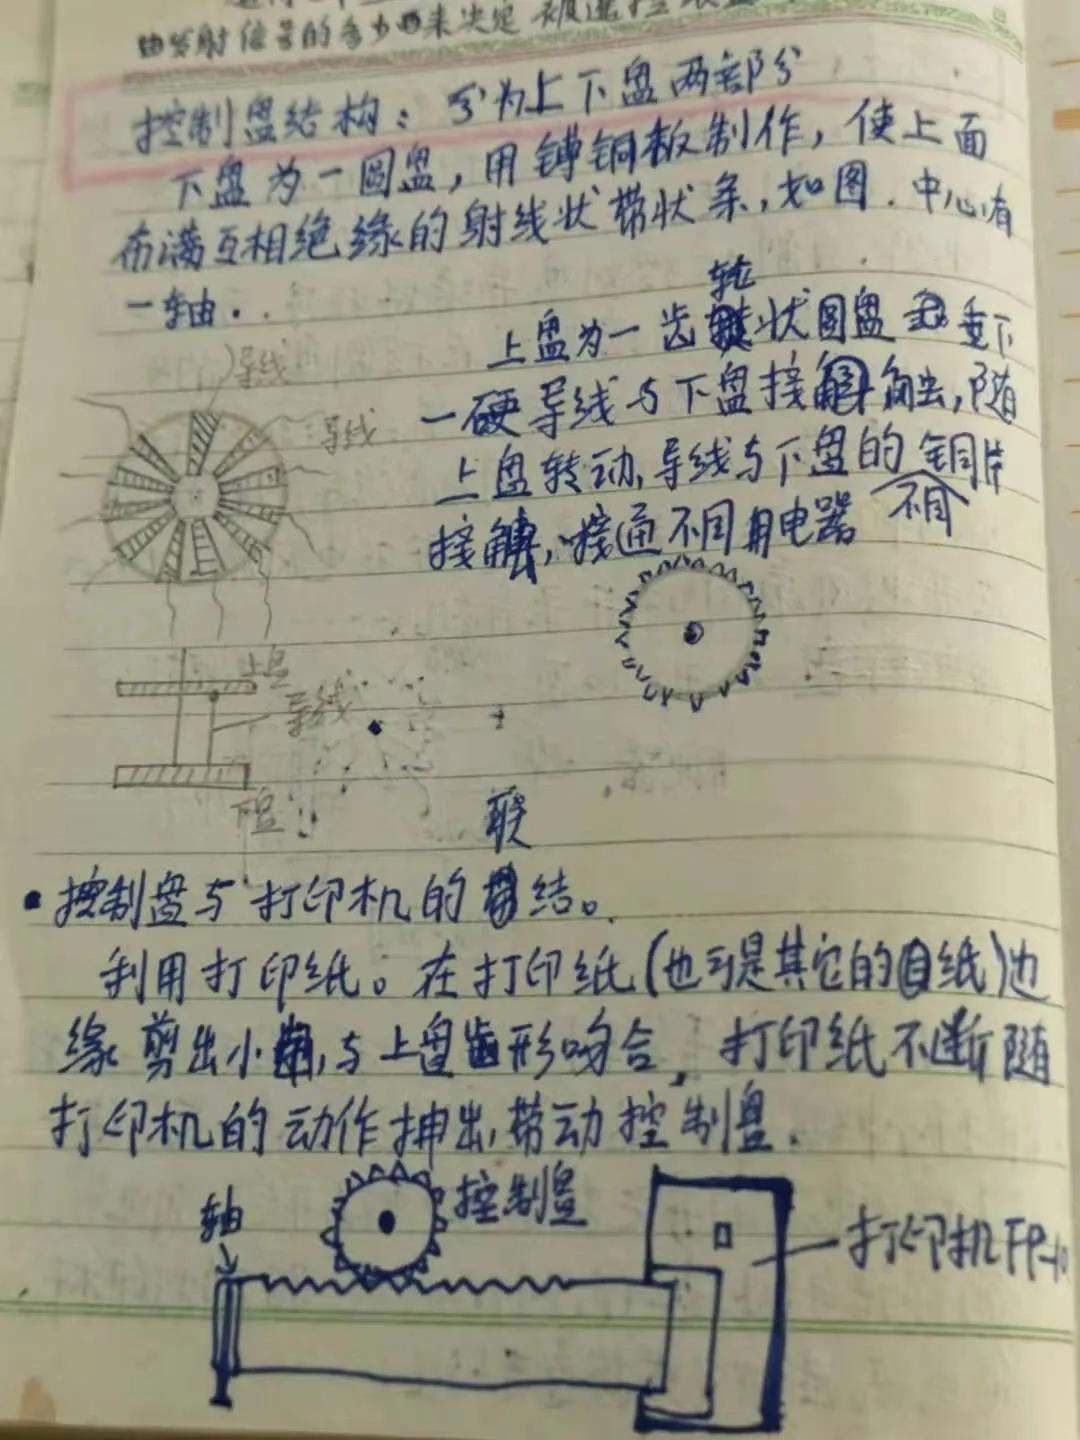 由发射信号的多少来决定
控制盘结构：分为上下盘两部分
下盘为一圆盘，用铜板制作，使上面
布满互相绝缘的射线状带状条，如图．中心有
一轴．
导线
导线
上盘为一齿轮状圆盘 垂下
一硬导线与下盘接触，随
上盘转动，导线与下盘的不同铜片
接触，接通不同用电器
上盘
导线
下盘
控制盘与打印机的联结。
利用打印纸。在打印纸（也可是其它的纸）边
缘剪出小齿，与上盘齿形吻合，打印纸不断随
打印机的动作抽出，带动控制盘．
轴
控制盘
打印机FP-10